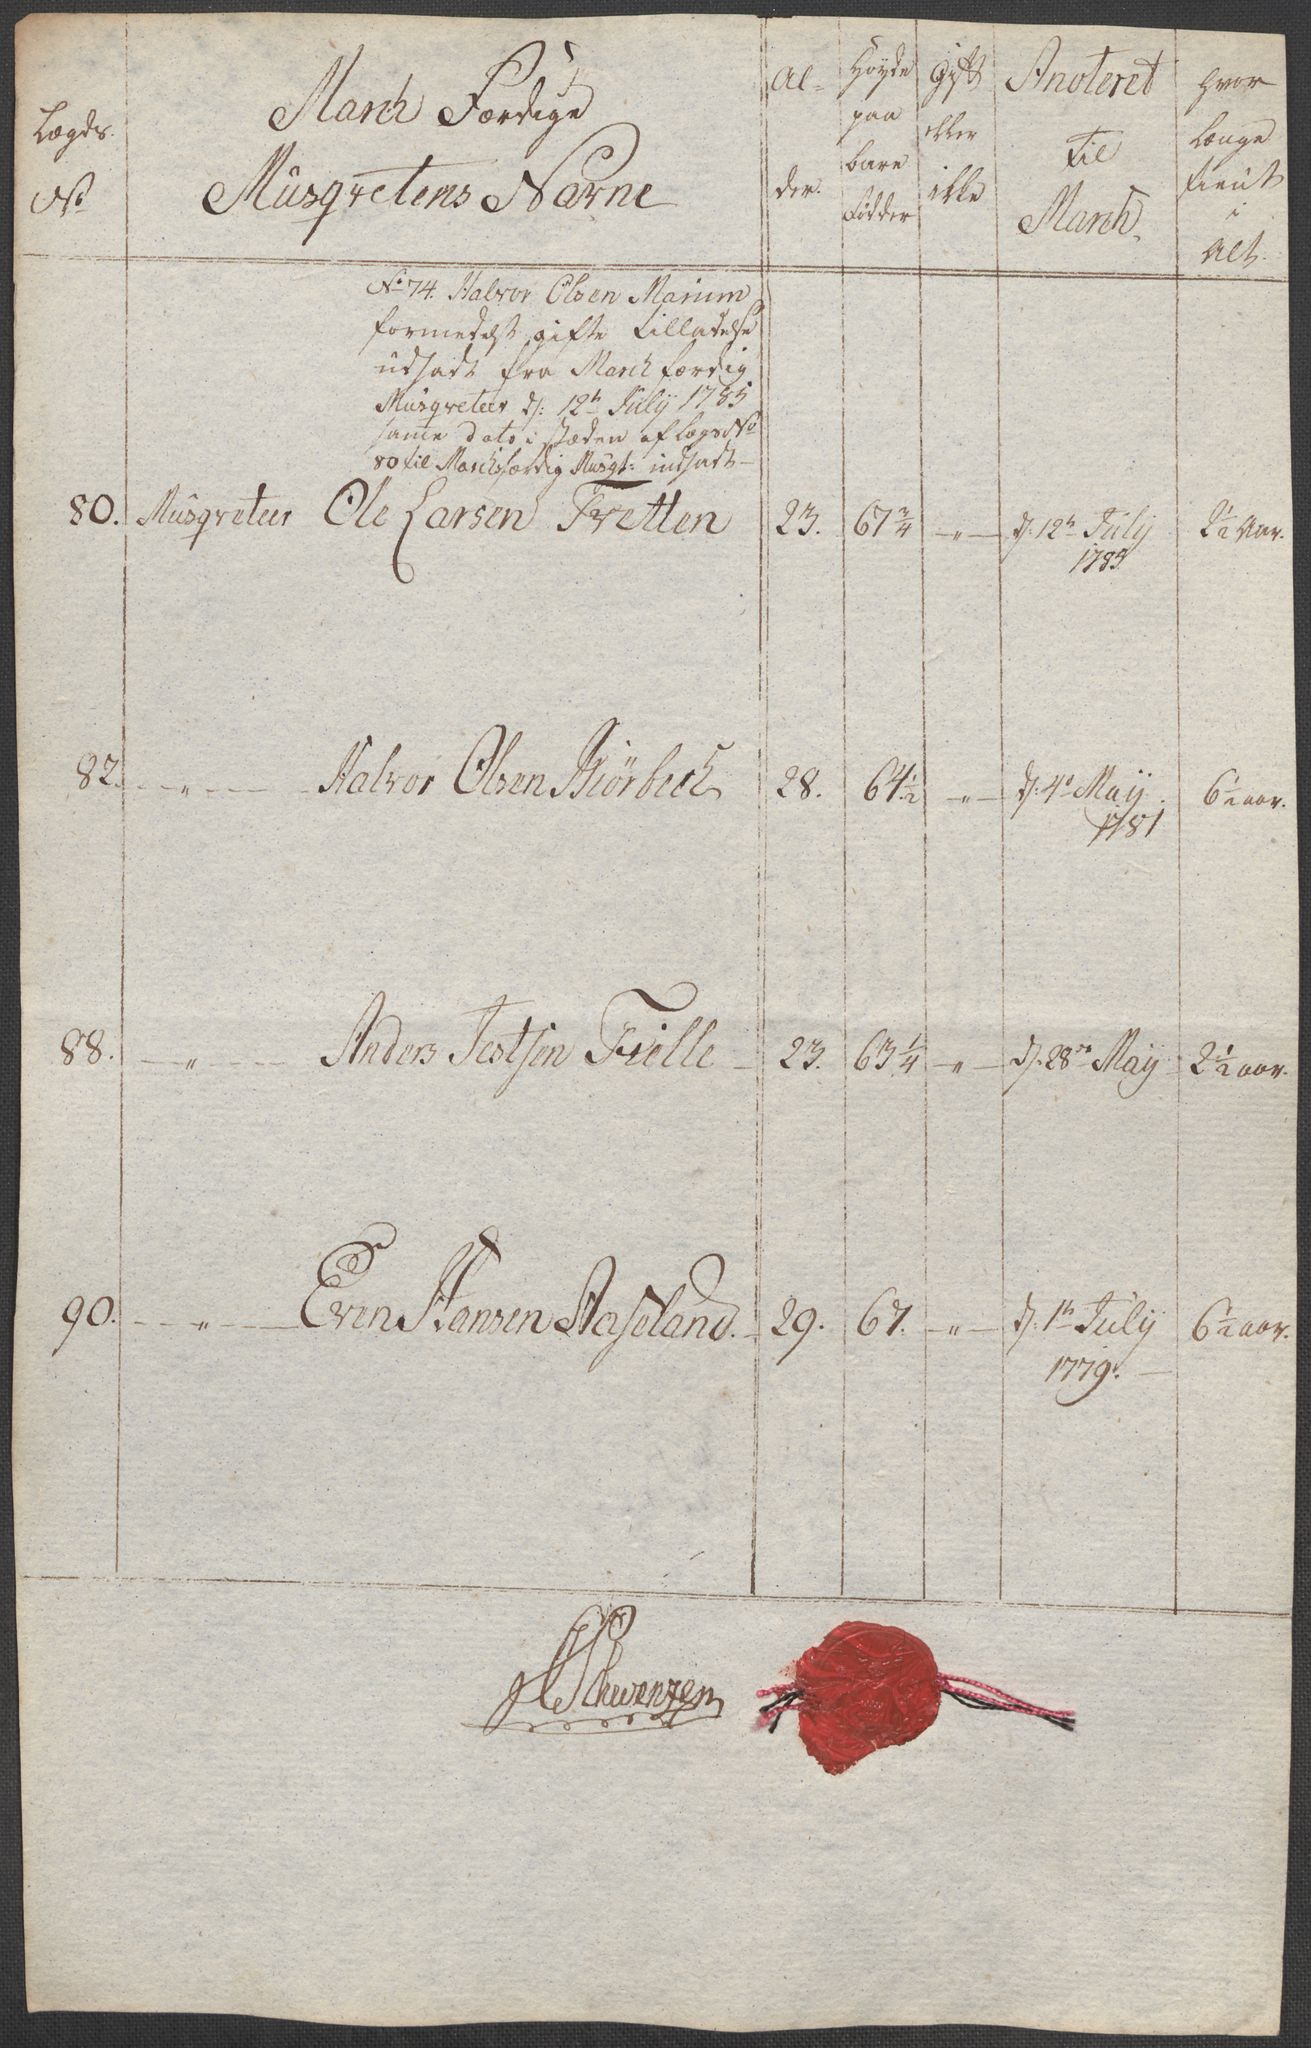 Lægds.
No
March Færdige
Musqretens Navne
Al-
der.
Høyde
paa
bare
Fødder
Gift
eller
ikke
Anoteret
til
March,
Hvor
længe
tient
i
Alt.
No 74. Halvor Olsen Marum
formedelst gifte Tilladelse
udsadt fra March færdig
Musqveteer d: 12h July 1785
same dato i stæden af Lægds No
80 til Marchfærdig Musqt: indsadt —
80. Musqveteer Ole Larsen Tvetten 23. 67 3/4 — " — d: 12h July 2 1/2 Aar.
1785.
82. — " — Halvor Olsen Kiørbech 28. 64 1/2 — " — d: 4de May 6 1/2 aar.
1781
88. — " — Anders Testsen Fielle 23. 63 1/4 — " — d. 28de May 2 1/2 aar.
90. — " — Even Hansen Aaseland. 29. 67. — " — d: 1h July 6 1/2 aar.
1779. —
Schwenzen